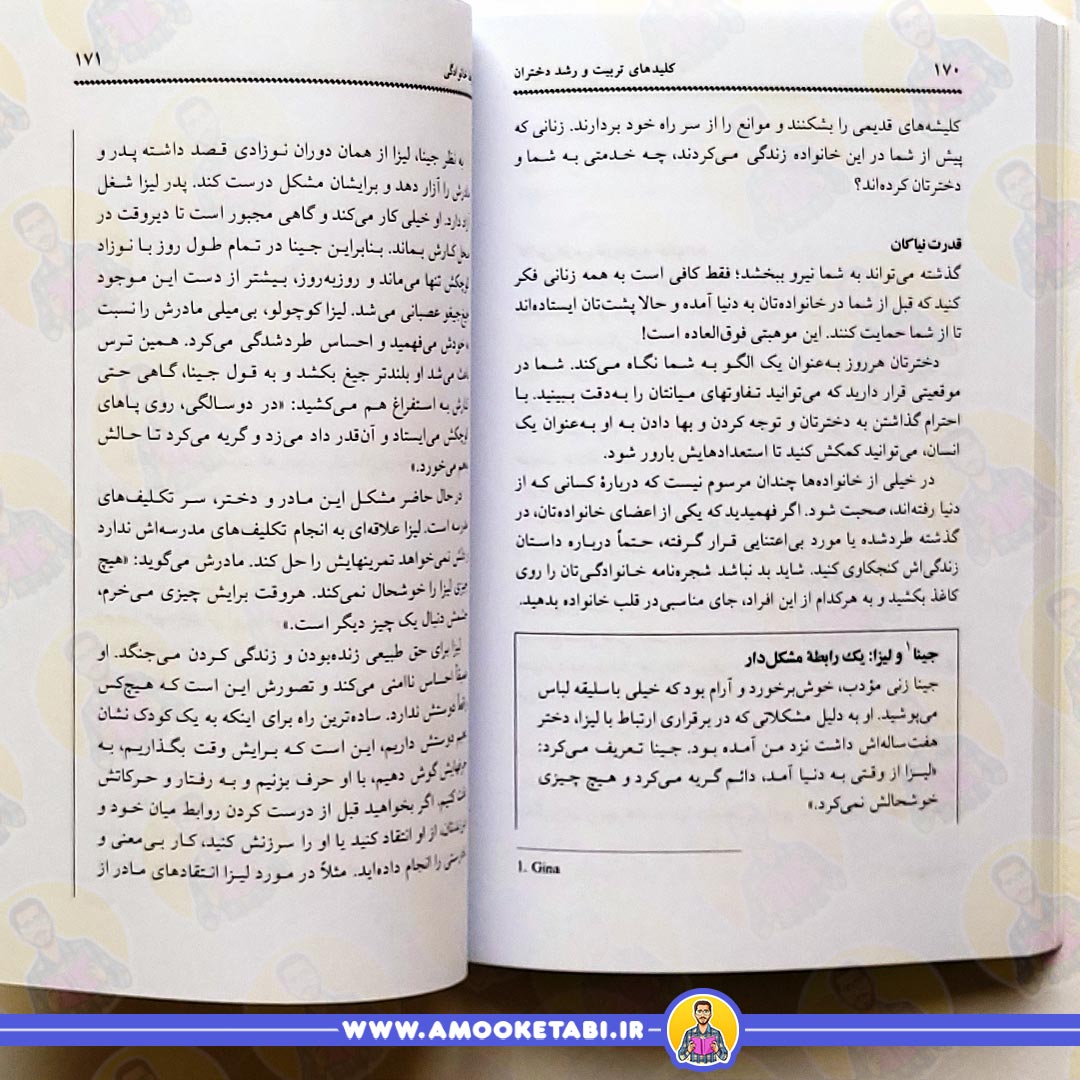 ۱۷۰
کلیدهای تربیت و رشد دختران
کلیشه‌های قدیمی را بشکنند و موانع را از سر راه خود بردارند. زنانی که
پیش از شما در این خانواده زندگی می‌کردند، چه خدمتی به شما و
دخترتان کرده‌اند؟
قدرت نیاکان
گذشته می‌تواند به شما نیرو ببخشد؛ فقط کافی است به همه زنانی فکر
کنید که قبل از شما در خانواده‌تان به دنیا آمده و حالا پشت‌تان ایستاده‌اند
تا از شما حمایت کنند. این موهبتی فوق‌العاده است!
دخترتان هرروز به‌عنوان یک الگو به شما نگاه می‌کند. شما در
موقعیتی قرار دارید که می‌توانید تفاوتهای میانتان را به‌دقت ببینید. با
احترام گذاشتن به دخترتان و توجه کردن و بها دادن به او به‌عنوان یک
انسان، می‌توانید کمکش کنید تا استعدادهایش بارور شود.
در خیلی از خانواده‌ها چندان مرسوم نیست که دربارهٔ کسانی که از
دنیا رفته‌اند، صحبت شود. اگر فهمیدید که یکی از اعضای خانواده‌تان، در
گذشته طردشده یا مورد بی‌اعتنایی قرار گرفته، حتماً درباره داستان
زندگی‌اش کنجکاوی کنید. شاید بد نباشد شجره‌نامه خانوادگی‌تان را روی
کاغذ بکشید و به هرکدام از این افراد، جای مناسبی در قلب خانواده بدهید.
جینا۱ و لیزا: یک رابطهٔ مشکل‌دار
جینا زنی مؤدب، خوش‌برخورد و آرام بود که خیلی باسلیقه لباس
می‌پوشید. او به دلیل مشکلاتی که در برقراری ارتباط با لیزا، دختر
هفت‌ساله‌اش داشت نزد من آمده بود. جینا تعریف می‌کرد:
«لیزا از وقتی به دنیا آمد، دائم گریه می‌کرد و هیچ چیزی
خوشحالش نمی‌کرد.»
1. Gina
خانوادگی
۱۷۱
به نظر جینا، لیزا از همان دوران نوزادی قصد داشته پدر و
مادرش را آزار دهد و برایشان مشکل درست کند. پدر لیزا شغل
آزاد دارد. او خیلی کار می‌کند و گاهی مجبور است تا دیروقت در
محل کارش بماند. بنابراین جینا در تمام طول روز با نوزاد
کوچکش تنها می‌ماند و روزبه‌روز، بیشتر از دست این موجود
جیغ‌جیغو عصبانی می‌شد. لیزا کوچولو، بی‌میلی مادرش را نسبت
خودش می‌فهمید و احساس طردشدگی می‌کرد. همین ترس
باعث می‌شد او بلندتر جیغ بکشد و به قول جینا، گاهی حتی
کارش به استفراغ هم می‌کشید: «در دوسالگی، روی پاهای
کوچکش می‌ایستاد و آن‌قدر داد می‌زد و گریه می‌کرد تا حالش
هم می‌خورد.»
در حال حاضر مشکل این مادر و دختر، سر تکلیف‌های
مدرسه است. لیزا علاقه‌ای به انجام تکلیف‌های مدرسه‌اش ندارد
نمی‌خواهد تمرینهایش را حل کند. مادرش می‌گوید: «هیچ
چیزی لیزا را خوشحال نمی‌کند. هروقت برایش چیزی می‌خرم،
چشمش دنبال یک چیز دیگر است.»
لیزا برای حق طبیعی زنده‌بودن و زندگی کردن می‌جنگد. او
احساس ناامنی می‌کند و تصورش این است که هیچ‌کس
دوستش ندارد. ساده‌ترین راه برای اینکه به یک کودک نشان
دهیم دوستش داریم، این است که برایش وقت بگذاریم، به
حرفهایش گوش دهیم، با او حرف بزنیم و به رفتار و حرکاتش
دقت کنیم. اگر بخواهید قبل از درست کردن روابط میان خود و
از او انتقاد کنید یا او را سرزنش کنید، کار بی‌معنی و
را انجام داده‌اید. مثلاً در مورد لیزا انتقادهای مادر از
WWW.AMOOKETABI.IR